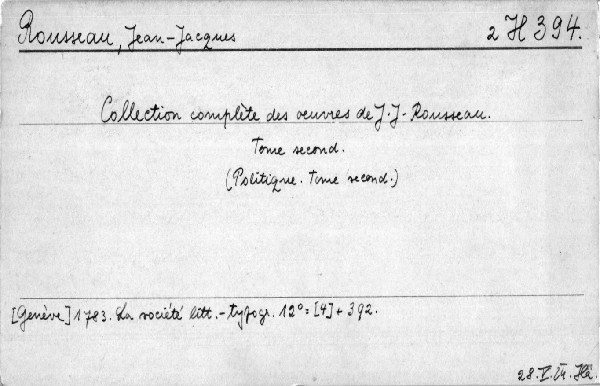 Rousseau, Jean-Jacques 2 H 394.
Collection complète des oeuvres de J.-J. Rousseau.
Tome second.
(Politique. Tome second.)
[Genève] 1783. La société litt.-typogr. 12° = [4] + 392.
28. V.